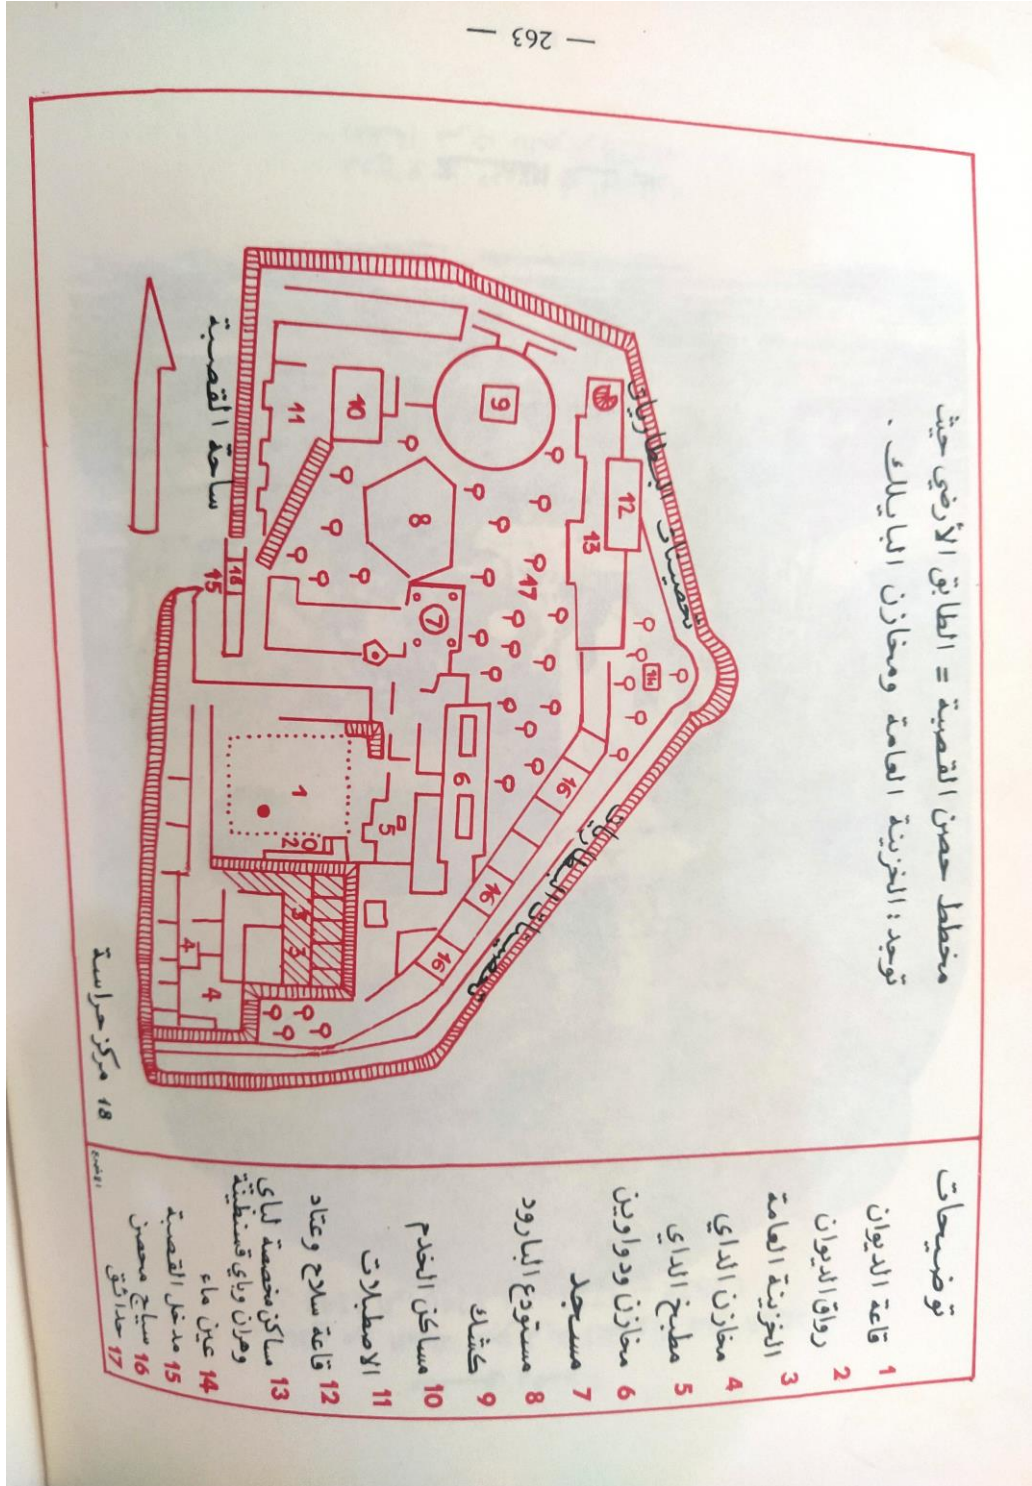 — 263 —
مخطط حصن القصبة = الطابق الأرضي حيث
توجد: الخزينة العامة ومخازن البايلك .
تحصينات البطاريات
تحصينات البطاريات
ساحة القصبة
9
10
11
12
13
8
17
7
14
18
15
16
6
1
5
2
16
3
3
16
4
4
18 مركز حراسة
توضيحات
1 قاعة الديوان
2 رواق الديوان
3 الخزينة العامة
4 مخازن الداي
5 مطبخ الداي
6 مخازن ودواوين
7 مسجد
8 مستودع البارود
9 كشك
10 مساكن الخدم
11 الاصطبلات
12 قاعة سلاح وعتاد
13 مساكن مخصصة لباي
وهران وباي قسنطينة
14 عين ماء
15 مدخل القصبة
16 سياج محصن
17 حدائق